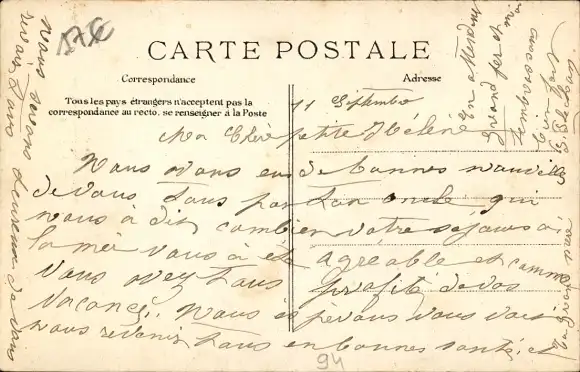 CARTE POSTALE
Correspondance
Adresse
Tous les pays étrangers n'acceptent pas la
correspondance au recto. se renseigner à la Poste
11 Septembre
Ma Chère petite Hélène
Nous avons eu de bonnes nouvelles
de vous tous par ton oncle qui
nous à dit combien votre séjour a
la mer vous à été agréable et comme
vous avez tous profité de vos
vacances. Nous espérons vous voir
nous revenir tous en bonnes santé, et
nous serons heureux de vous
revoir tous
En attendant
grand père et
94